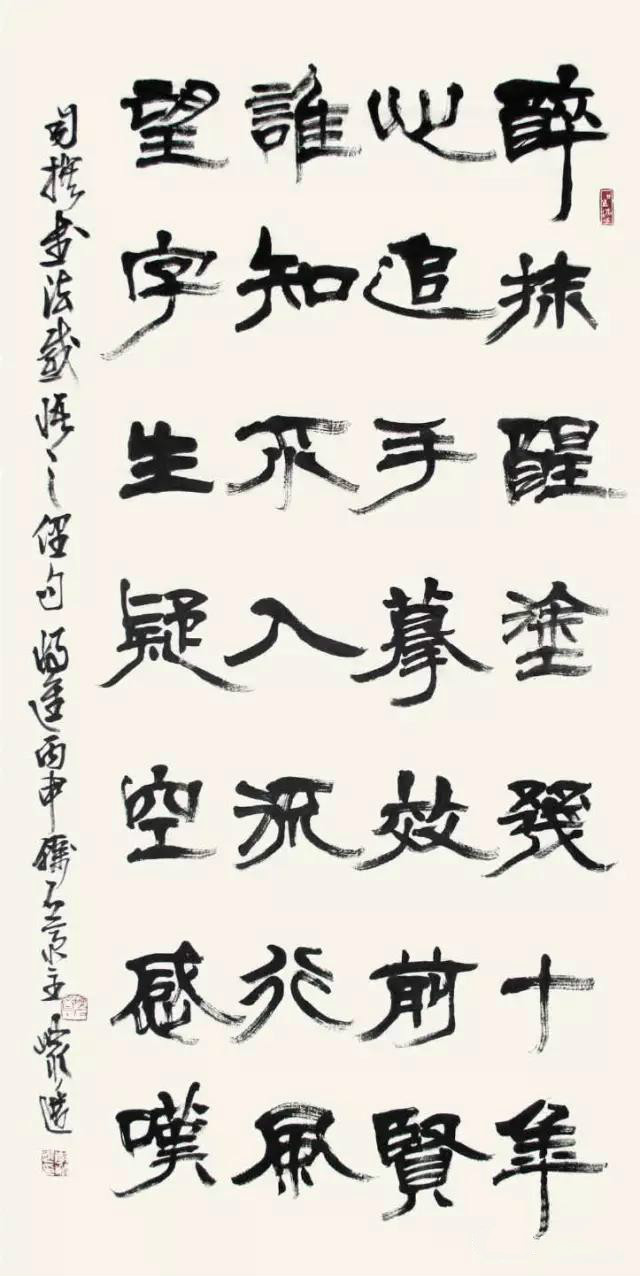 醉抹醒塗發十年
心追手摹效前賢
誰知不入流行風
望字生疑空感嘆
自撰書法感悟之俚句時逢丙申